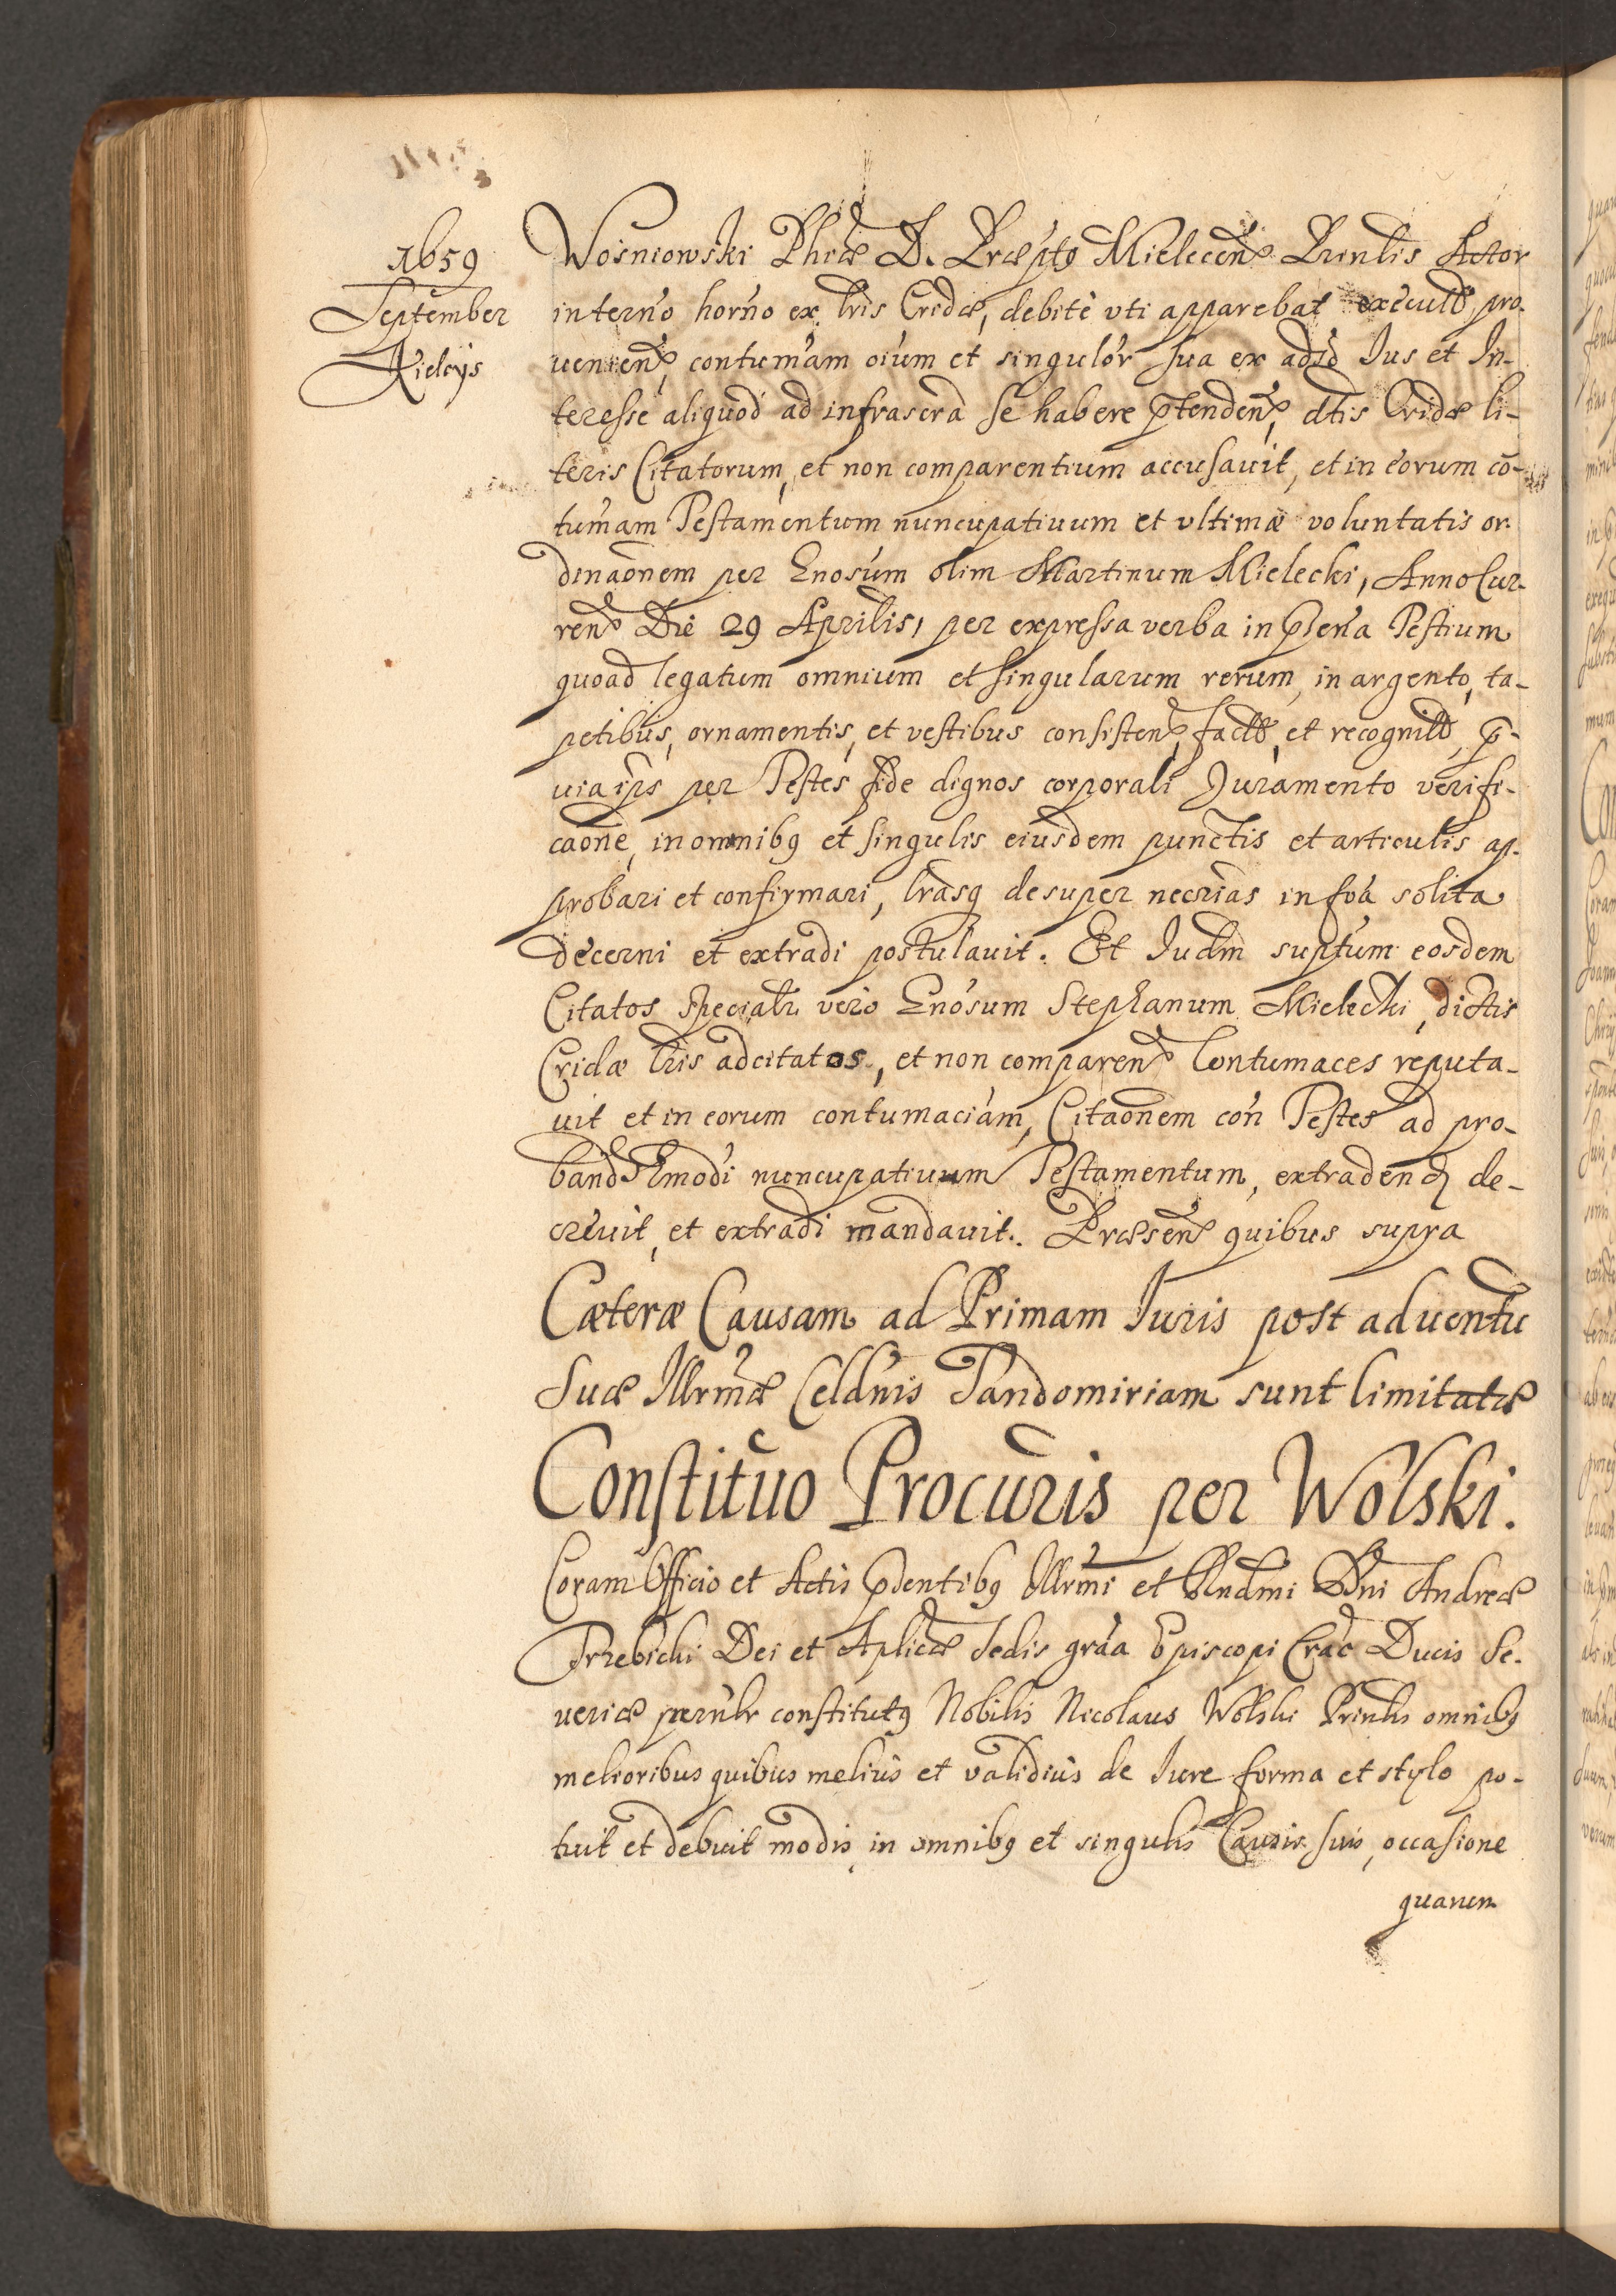 1659
September
Kielcys
Wosniowski Phiæ D. Præptö Mielecen̄ Prin̄lis Actor
in term̃o horño ex lris Cridæ, debitè vti apparebat executis pro-
uenien̄ contum̃am oium et singulor̃ sua ex adũso Ius et In-
teresse aliquod ad infrascrã se habere p̃tenden̄, dtis Cridæ li-
teris Citatorum, et non comparentium accusauit, et in eorum cō-
tum̃am Testamentum nuncupatiuum et vltimæ voluntatis or-
dinaõnem per Gnosũm olim Martinum Mielecki, Anno Cur-
ren̄ Die 29 Aprilis, per expressa verba in p̃seña Testium
quoad legatum omnium et singularum rerum, in argento, ta-
petibus, ornamentis, et vestibus consisten̄, fact, et recognit, p̃-
uia ips per Testes fide dignos corporali Juramento verifi-
caõne, in omnibq et singulis eiusdem punctis et articulis ap-
probari et confirmari, lrãsq desuper necrias in foã solita
decerni et extradi postulauit. Et Iudm̃ suptum eosdem
Citatos specialr vero Gnosum Stephanum Mielecki, dictis
Cridæ lris adcitatos, et non comparen̄ Contumaces reputa-
uit et in eorum contumaciam, Citaõnem coñ Testes ad pro-
band Emodi nuncupatiuum Testamentum, extradend de-
creuit, et extradi mandauit. Præsen̄ quibus supra
Cæteræ Causam ad Primam Iuris post aduentũ
Suæ Illrmæ Celdnis Sandomiriam sunt limitatæ
Constituo Procuris per Wolski.
Coram Officio et Actis p̃dentibq Illrmi et Rndmi Dni Andreæ
Trzebicki Dei et Aplicæ Sedis grãa Episcopi Crac̃ Ducis Se-
ueriæ perũlr constitutq Nobilis Nicolaus Wolski Prin̄lis omnibq
melioribus quibus meliùs et validiùs de Iure forma et stylo po-
tuit et debuit modis, in omnibq et singulis Causis suis, occasione
quarum